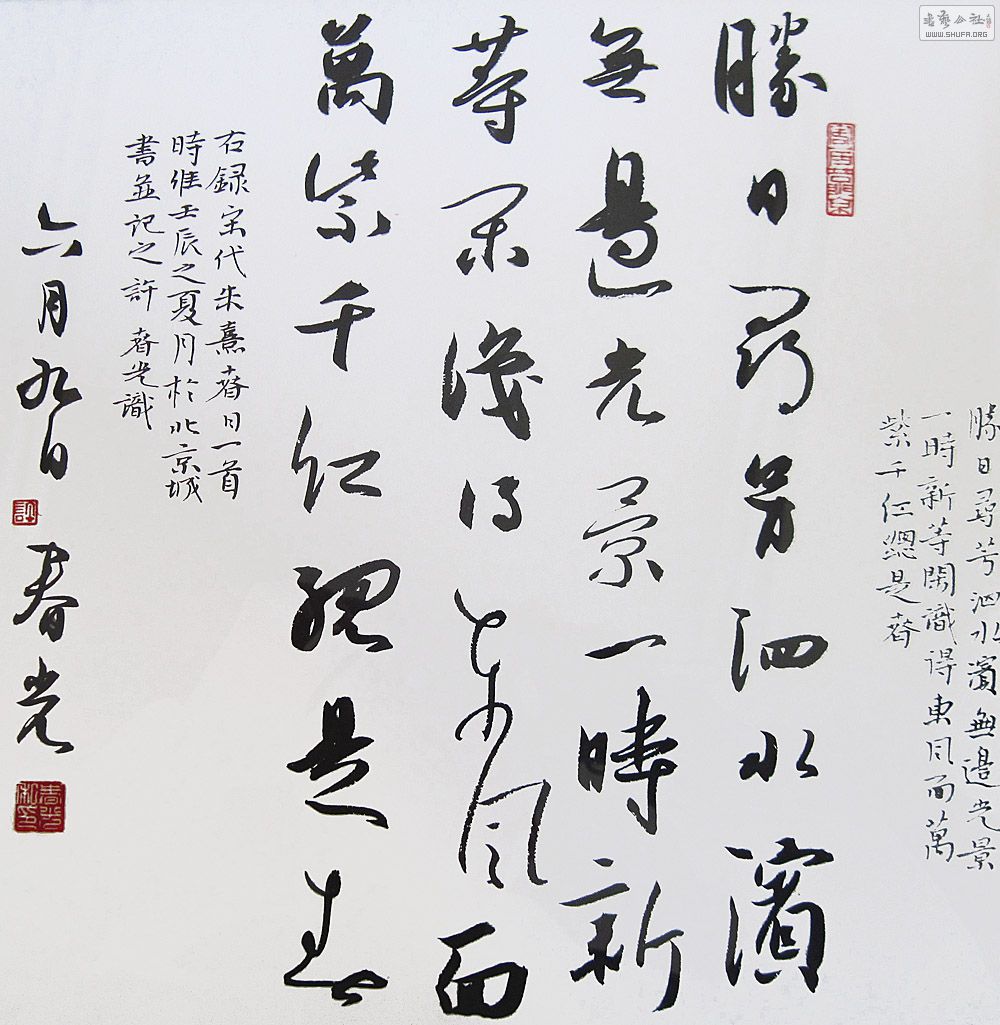 書艺公社
WWW.SHUFA.ORG
勝日尋芳泗水濱無邊光景
一時新等閑識得東風面萬
紫千红總是春
勝日尋芳泗水濱
無邊光景一時新
等閑識得東風面
萬紫千红總是春
右録宋代朱熹春日一首
時維壬辰之夏月於北京城
書並記之許春光識
六月九日許春光